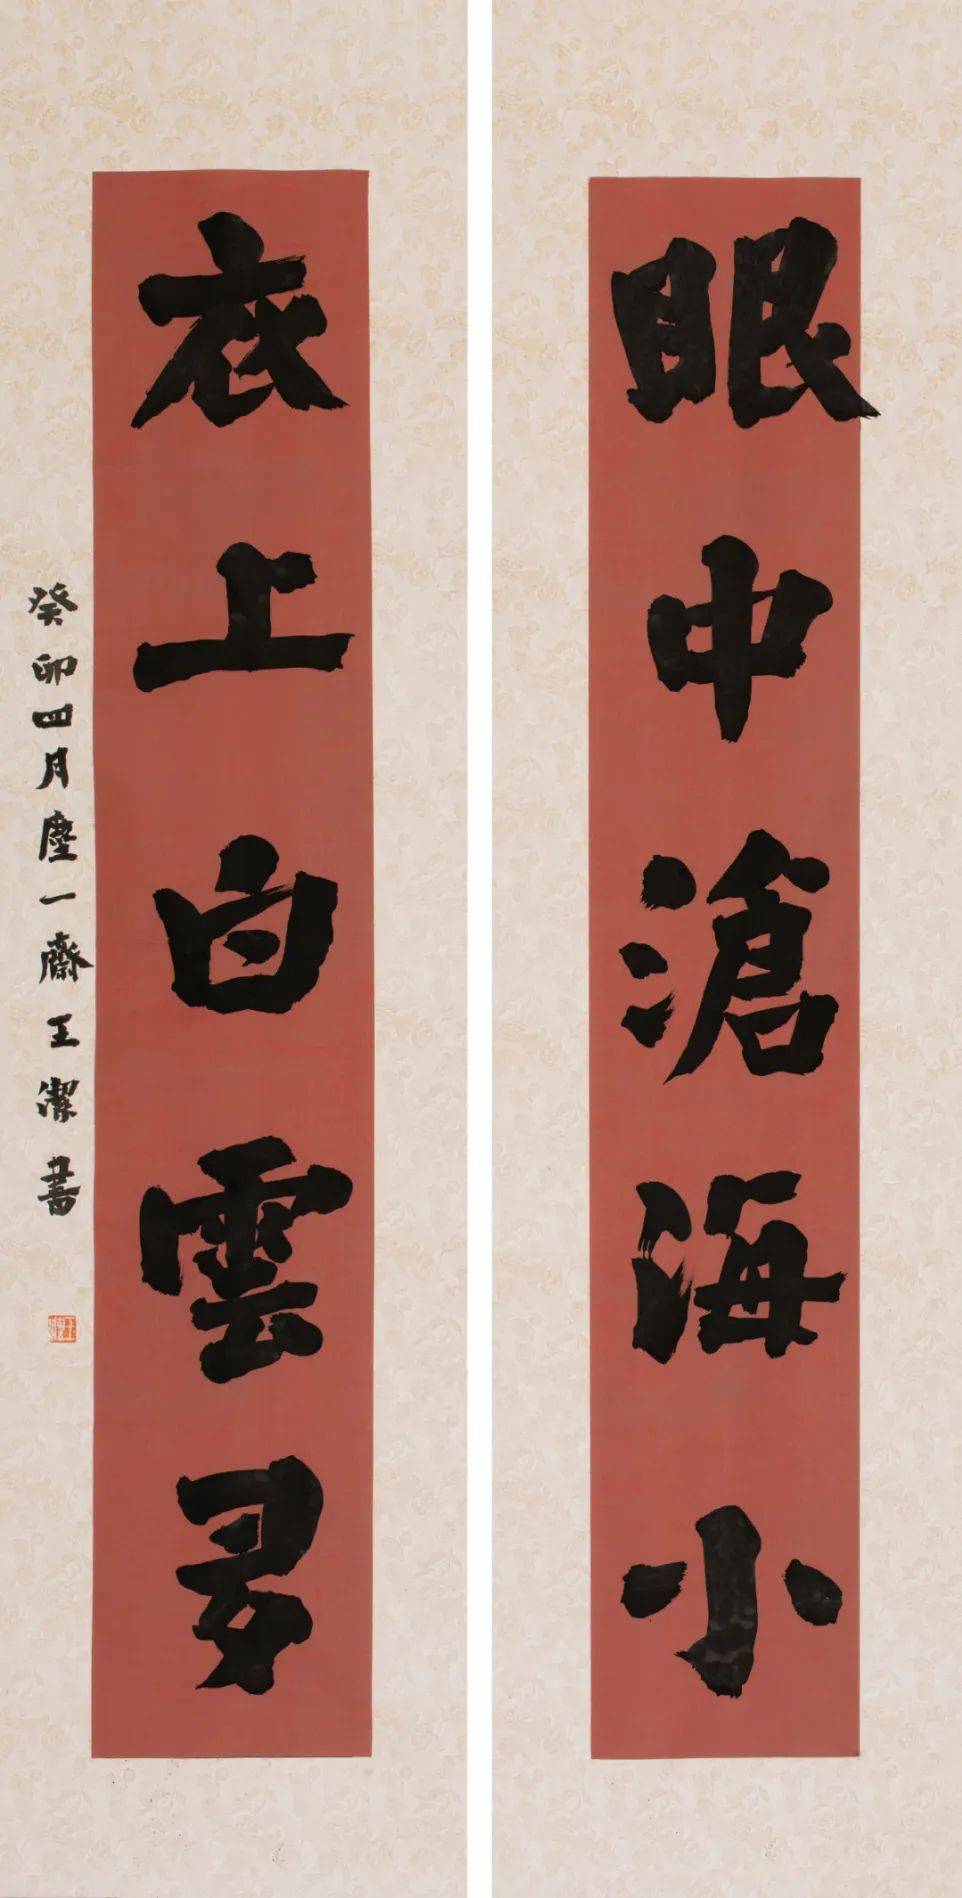 眼中滄海小
衣上白雲多
癸卯四月塵一齋王潔書